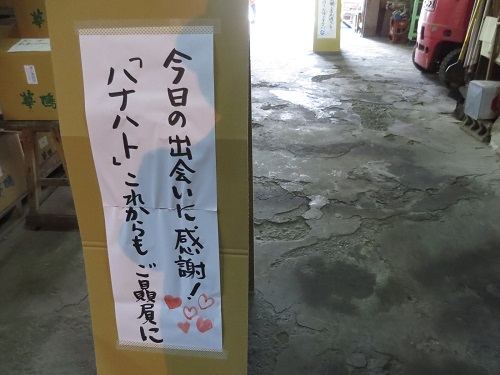 今日の出会いに感謝!
「ハナハト」これからもご贔屓に
華鳩